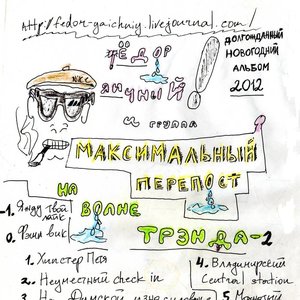 http://fedor-yaichniy.livejournal.com/
ФЁДОР
ЯИЧНЫЙ!
ДОЛГОЖДАННЫЙ
НОВОГОДНИЙ
АЛЬБОМ
2012
NKC
и группа
МАКСИМАЛЬНЫЙ
ПЕРЕПОСТ
НА
ВОЛНЕ
ТРЭНДА-2
-1. Янду твой
лайк
0. Фэйл вик
1. Хипстер Петя
2. Неуместный check in
4. Владимирский
Central station